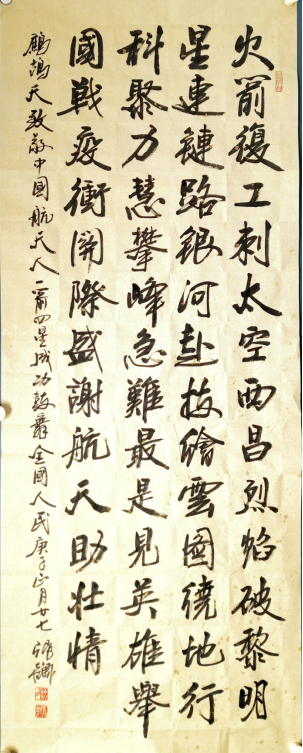 火箭復工刺太空西昌烈焰破黎明
星連鏈路銀河赴技繪雲圖繞地行
科聚力慧攀峰急難最是見英雄舉
國戰疫衝開際盛謝航天助壯情
鷓鴣天致敬中國航天人一箭四星成功鼓舞全國人民庚子正月廿七